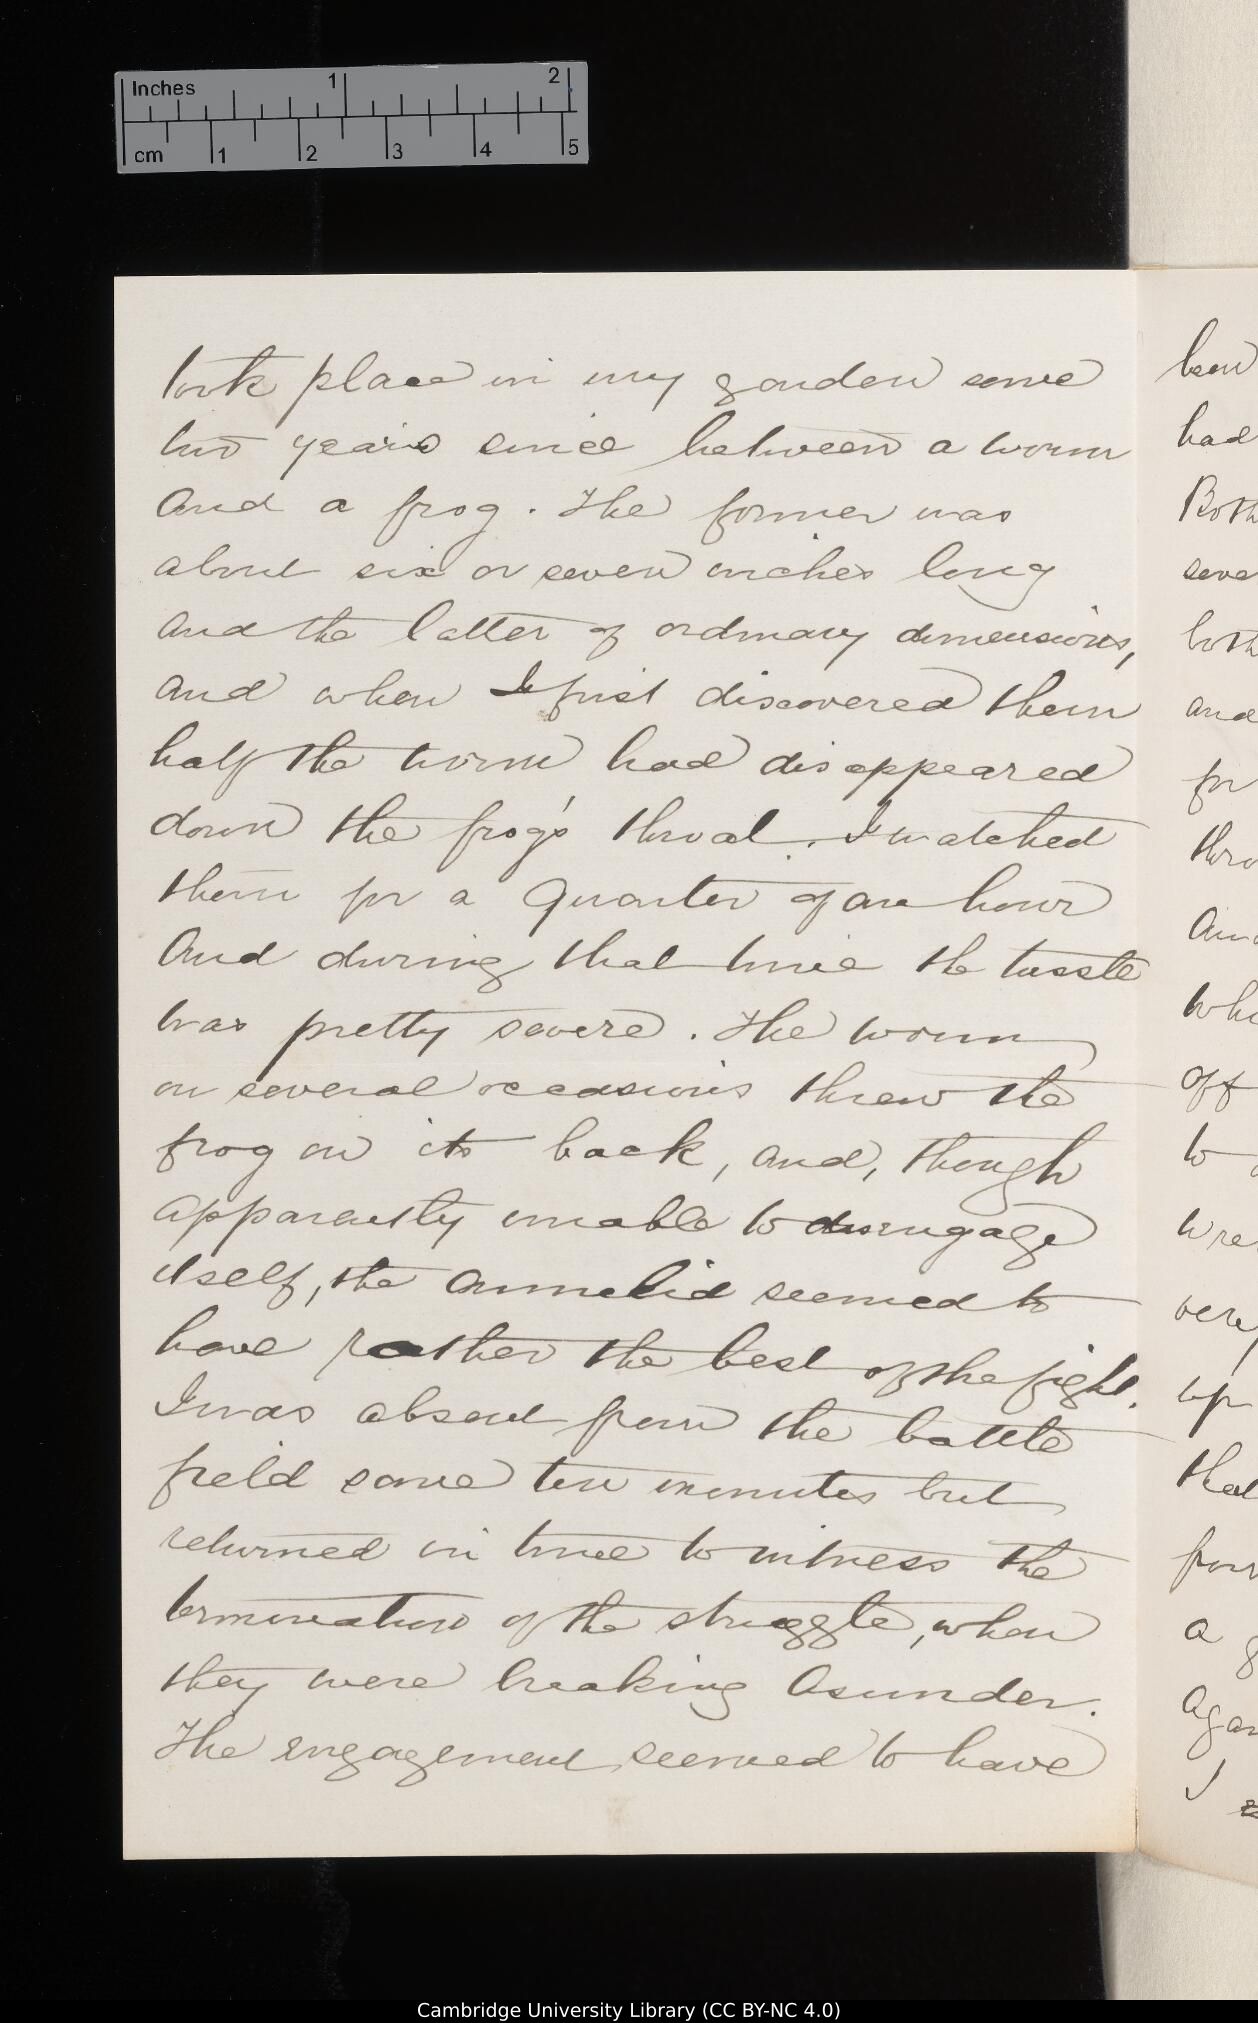 Inches 1 2
cm 1 2 3 4 5
took place in my garden some
two years since between a worm
and a frog. The former was
about six or seven inches long
and the latter of ordinary dimensions,
and when I first discovered them
half the worm had disappeared
down the frog's throat. I watched
them for a quarter of an hour
and during that time the tussle
was pretty severe. The worm
on several occasions threw the
frog on its back, and, though
apparently unable to disengage
itself, the annelid seemed to
have rather the best of the fight.
I was absent from the battle
field some ten minutes but
returned in time to witness the
termination of the struggle, when
they were breaking asunder.
The engagement seemed to have
been
had
Both
seve
both
and
for
thro
an
whi
off
to
wre
very
up
that
four
a g
again
I
Cambridge University Library (CC BY-NC 4.0)